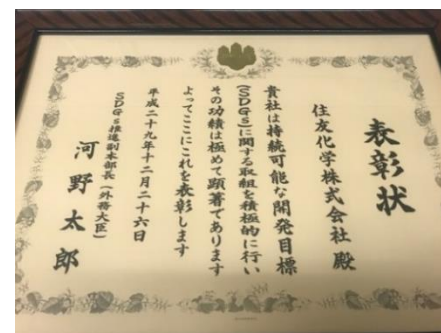 表彰状
住友化学株式会社殿
貴社は持続可能な開発目標
(SDGs)に関する取組を積極的に行い
その功績は極めて顕著であります
よってここにこれを表彰します
平成二十九年十二月二十六日
SDGs推進副本部長(外務大臣)
河野太郎